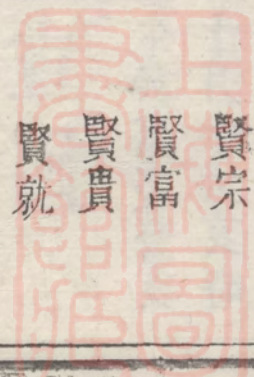 賢宗
賢富
賢貴
賢就